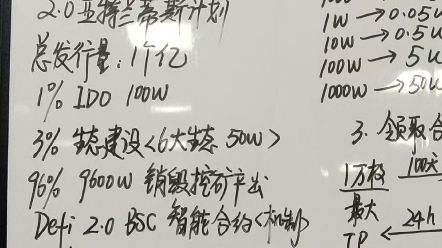 2.0 亚特兰蒂斯计划
总发行量：1个亿
1% IDO 100W
3% 生态建设<6大生态 50W>
96% 9600W 销毁挖矿产出
Defi 2.0 BSC 智能合约<机制>
1W → 0.05W
10W → 0.5W
100W → 5W
1000W → 50W
3. 领取合
1万枚 100天
最大
TP ← 24h